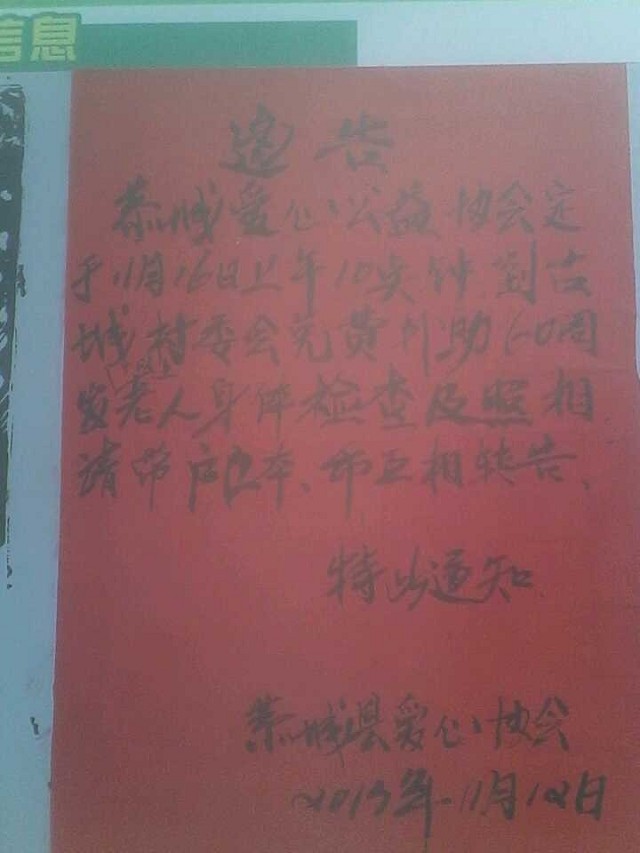 信息
通告
恭城爱心公益协会定
于11月16日上午10点钟到古
城村委会免费补助60周
岁以上老人身体检查及照相
请带户口本、布互相转告、
特此通知
恭城县爱心协会
2013年11月12日